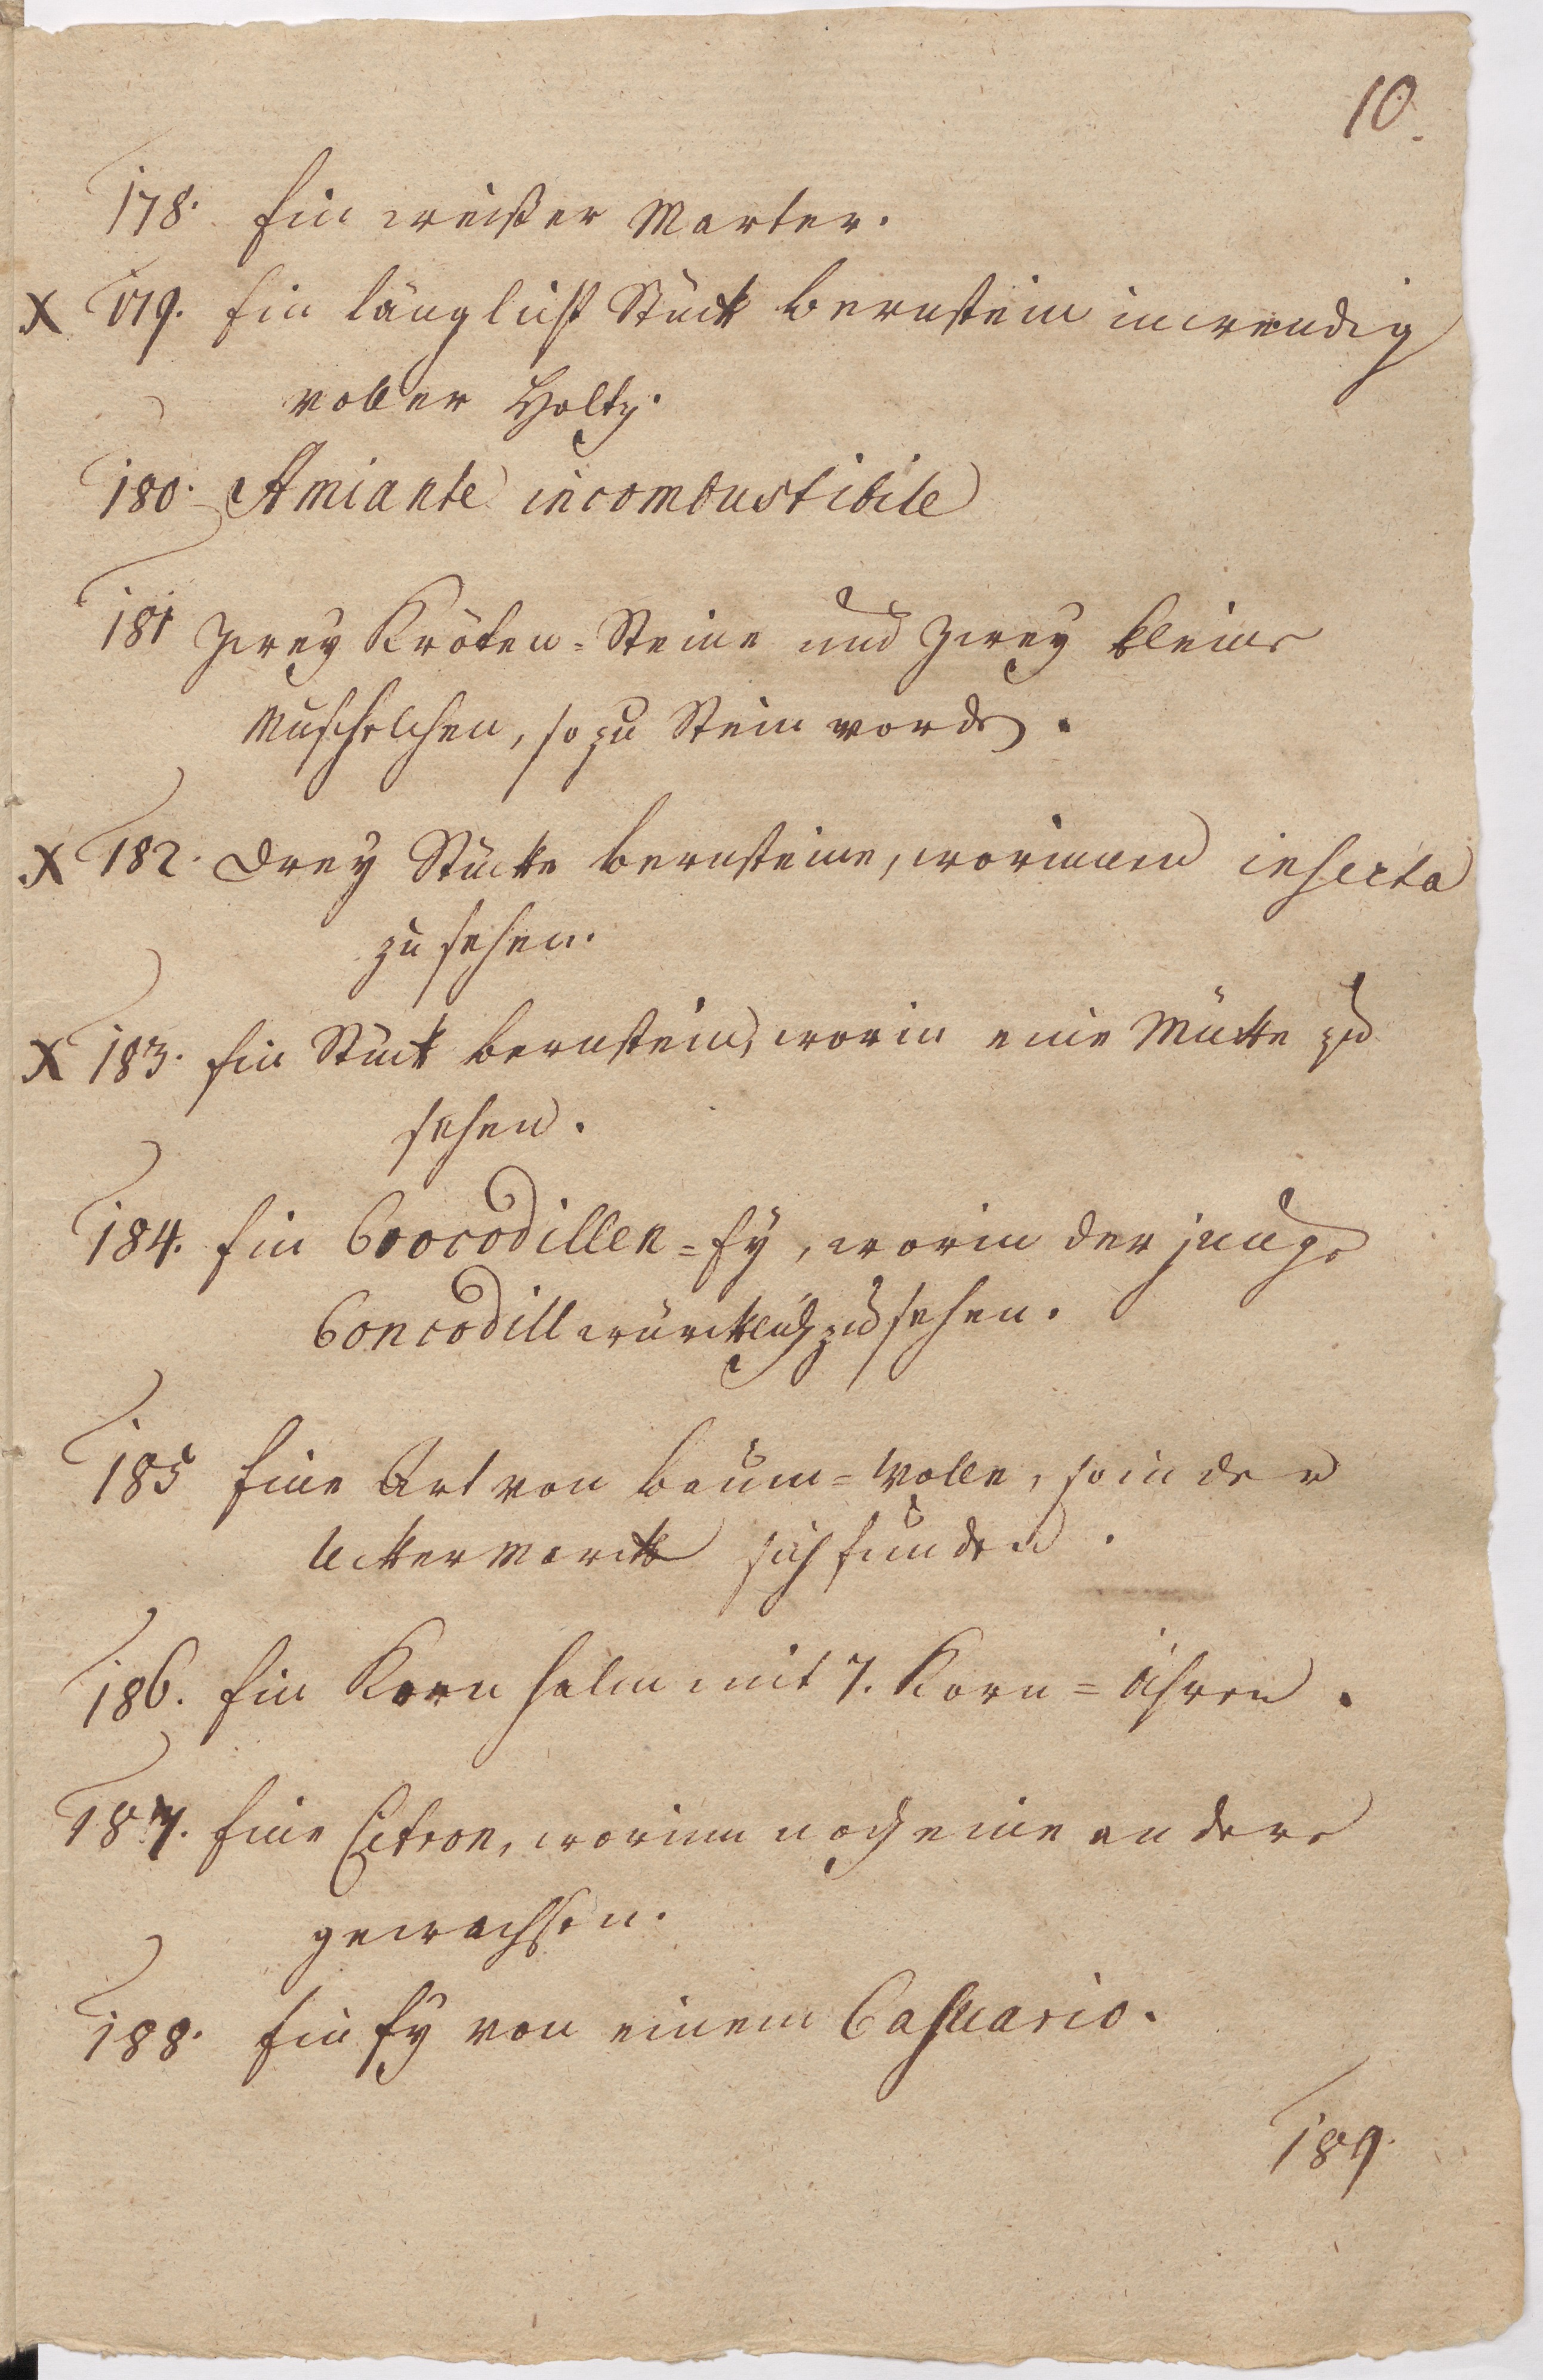 10.
178. Ein weißer Marter.
X 179. Ein länglicht Stück bernstein inwendig
voller Holtz.
180. Amiante incombustibile
181 Zwey Kröten=Steine und zwey kleine
Muschelchen, so zu Stein worden.
X 182. Drey Stücke bernsteine, worinnen insecta
zu sehen.
X 183. Ein Stück bernstein, worin eine Mücke zu
sehen.
184. Ein Crocodillen=Ey, worin der junge
Concodill würcklich zu sehen.
185 Eine Art von baum=Wolle, so in der
Uckermarck sich funden.
186. Ein Korn halm mit 7. Korn=Ähren.
187. Eine Citron, worinn noch eine andere
gewachsen.
188. Ein Ey von einem Casuario.
189.